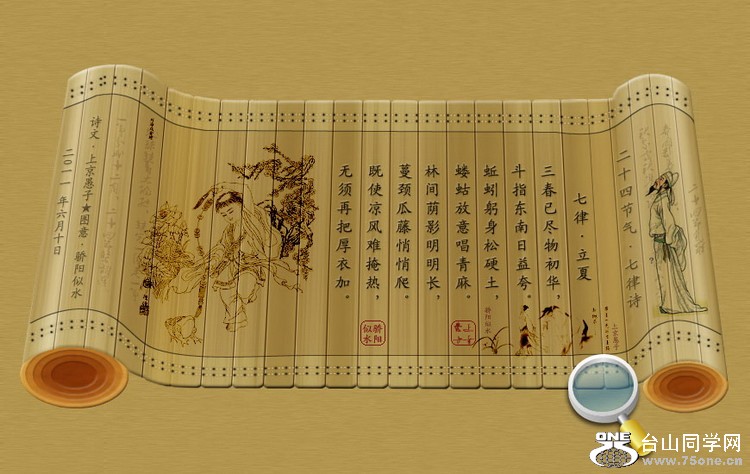 二十四节气·七律诗
七律·立夏
三春已尽物初华，
斗指东南日益夸。
蚯蚓躬身松硬土，
蝼蛄放意唱青麻。
林间荫影明明长，
蔓颈瓜藤悄悄爬。
既使凉风难掩热，
无须再把厚衣加。
骄阳似水
上京愚子
骄阳似水
诗文·上京愚子★图意·骄阳似水
二〇一一年六月十日
ONE
台山同学网
www.75one.cn